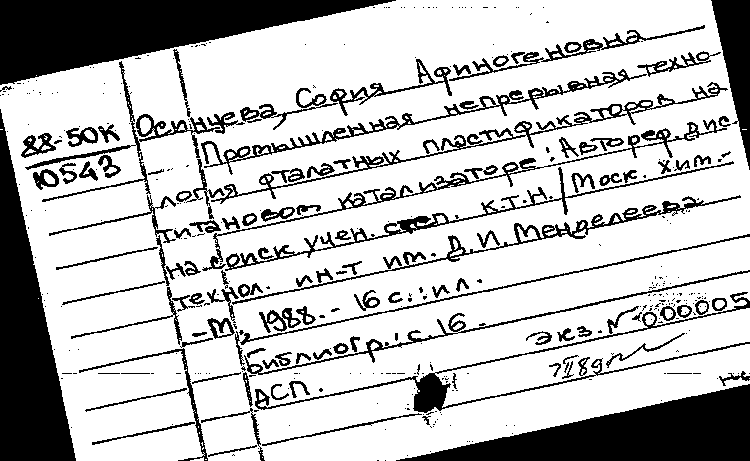 88-50К
10543
Осинцева, София Афиногеновна
Промышленная непрерывная техно-
логия фталатных пластификаторов на
титановом катализаторе: Автореф. дис.
на соиск. учен. степ. к.т.н. / Моск. хим.-
технол. ин-т им. Д.И. Менделеева
.-М., 1988.- 16 с.: ил.
Библиогр.: с. 16.
ДСП.
Экз. № 000005